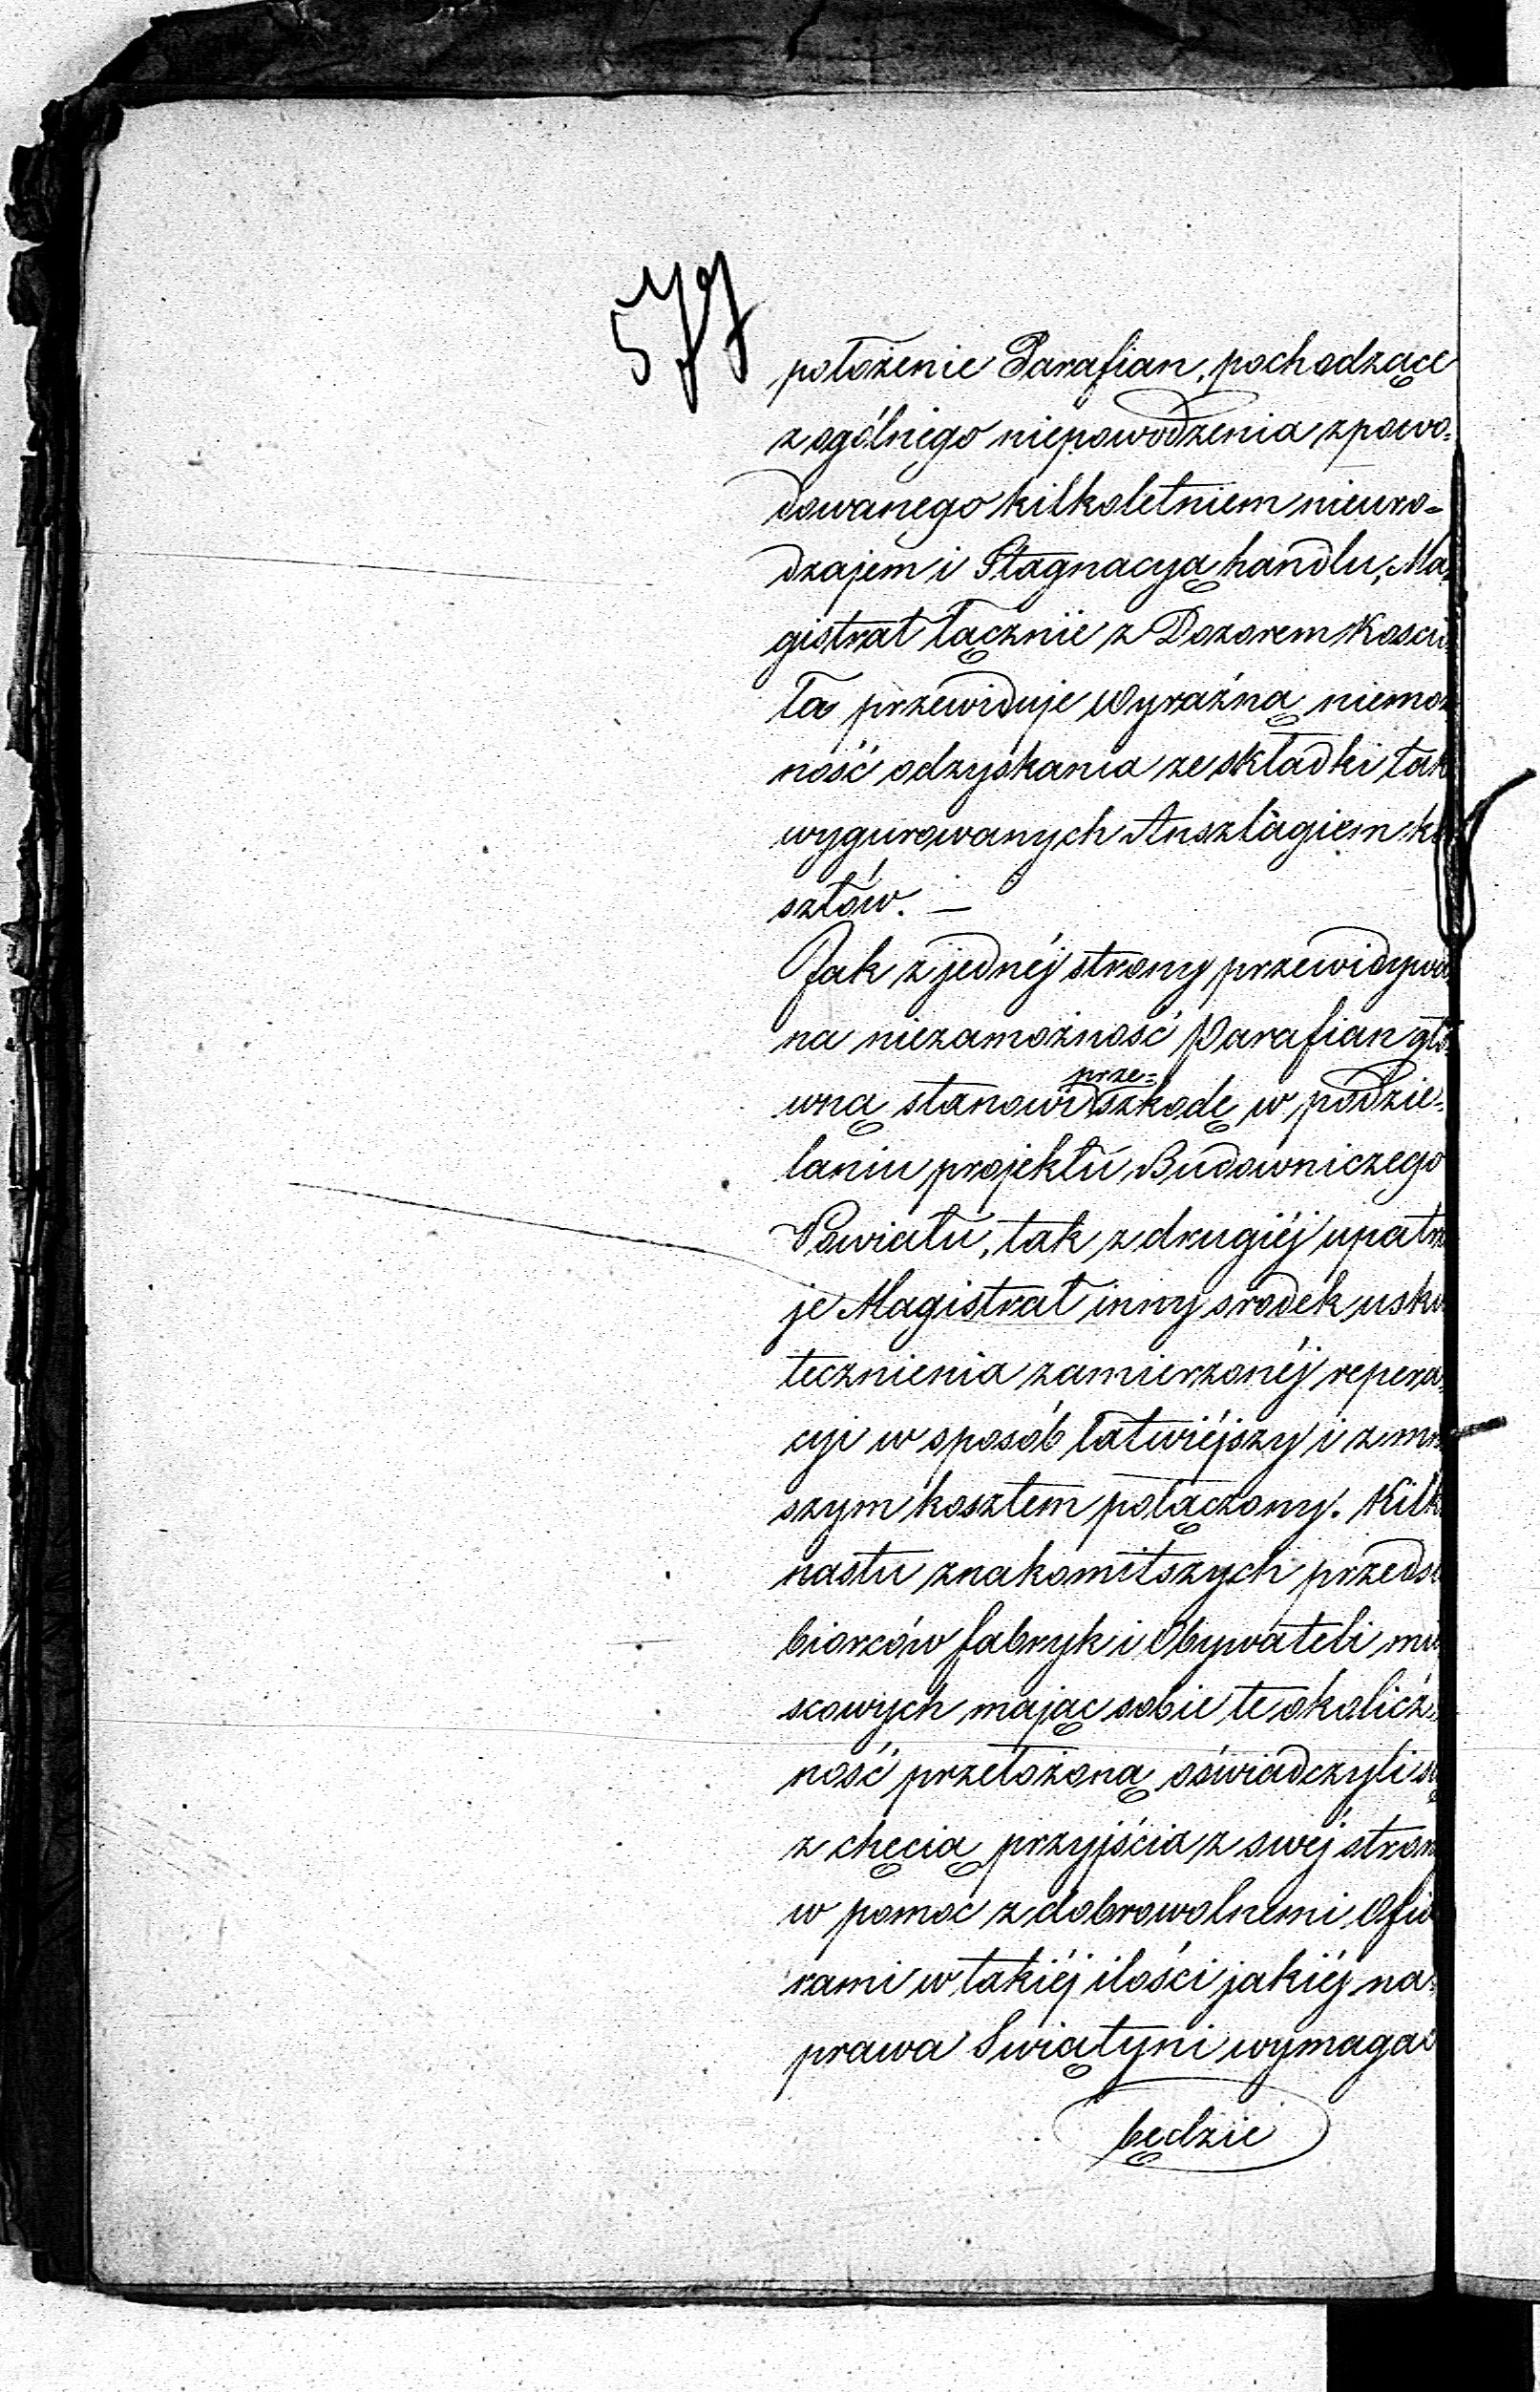 577
położenie Parafian, pochodzące
z ogólnego niepowodzenia zpowo=
dowanego kilkoletniem nieuro=
dzajem i Stagnacyą handlu, Ma=
gistrat łącznie z Dozorem Koscio
ła przewiduje wyraźną niemoż
ność odzyskania ze składki tak
wygurowanych Anszlagiem ko
sztów. —
Jak z jednéj strony przewidywa
na niezamożność Parafian głó
wną stanowi prze=szkodę w podzie=
laniu projektu Budowniczego
Powiatu, tak z drugiéj upatru
je Magistrat inny srodek usku
tecznienia zamierzonéj repera
cyi w sposób łatwiéjszy i zmn
szym kosztem połączony. Kilk
nastu znakomitszych przedsi
biorców fabryk i Obywateli mie
scowych mając sobie te okolicz=
ność przełożoną oświadczyli się
z chęcią przyjścia z swéj stron
w pomoc z dobrowolnemi Ofia
rami w takiéj ilości jakiéj na=
prawa Swiątyni wymagać
będzie